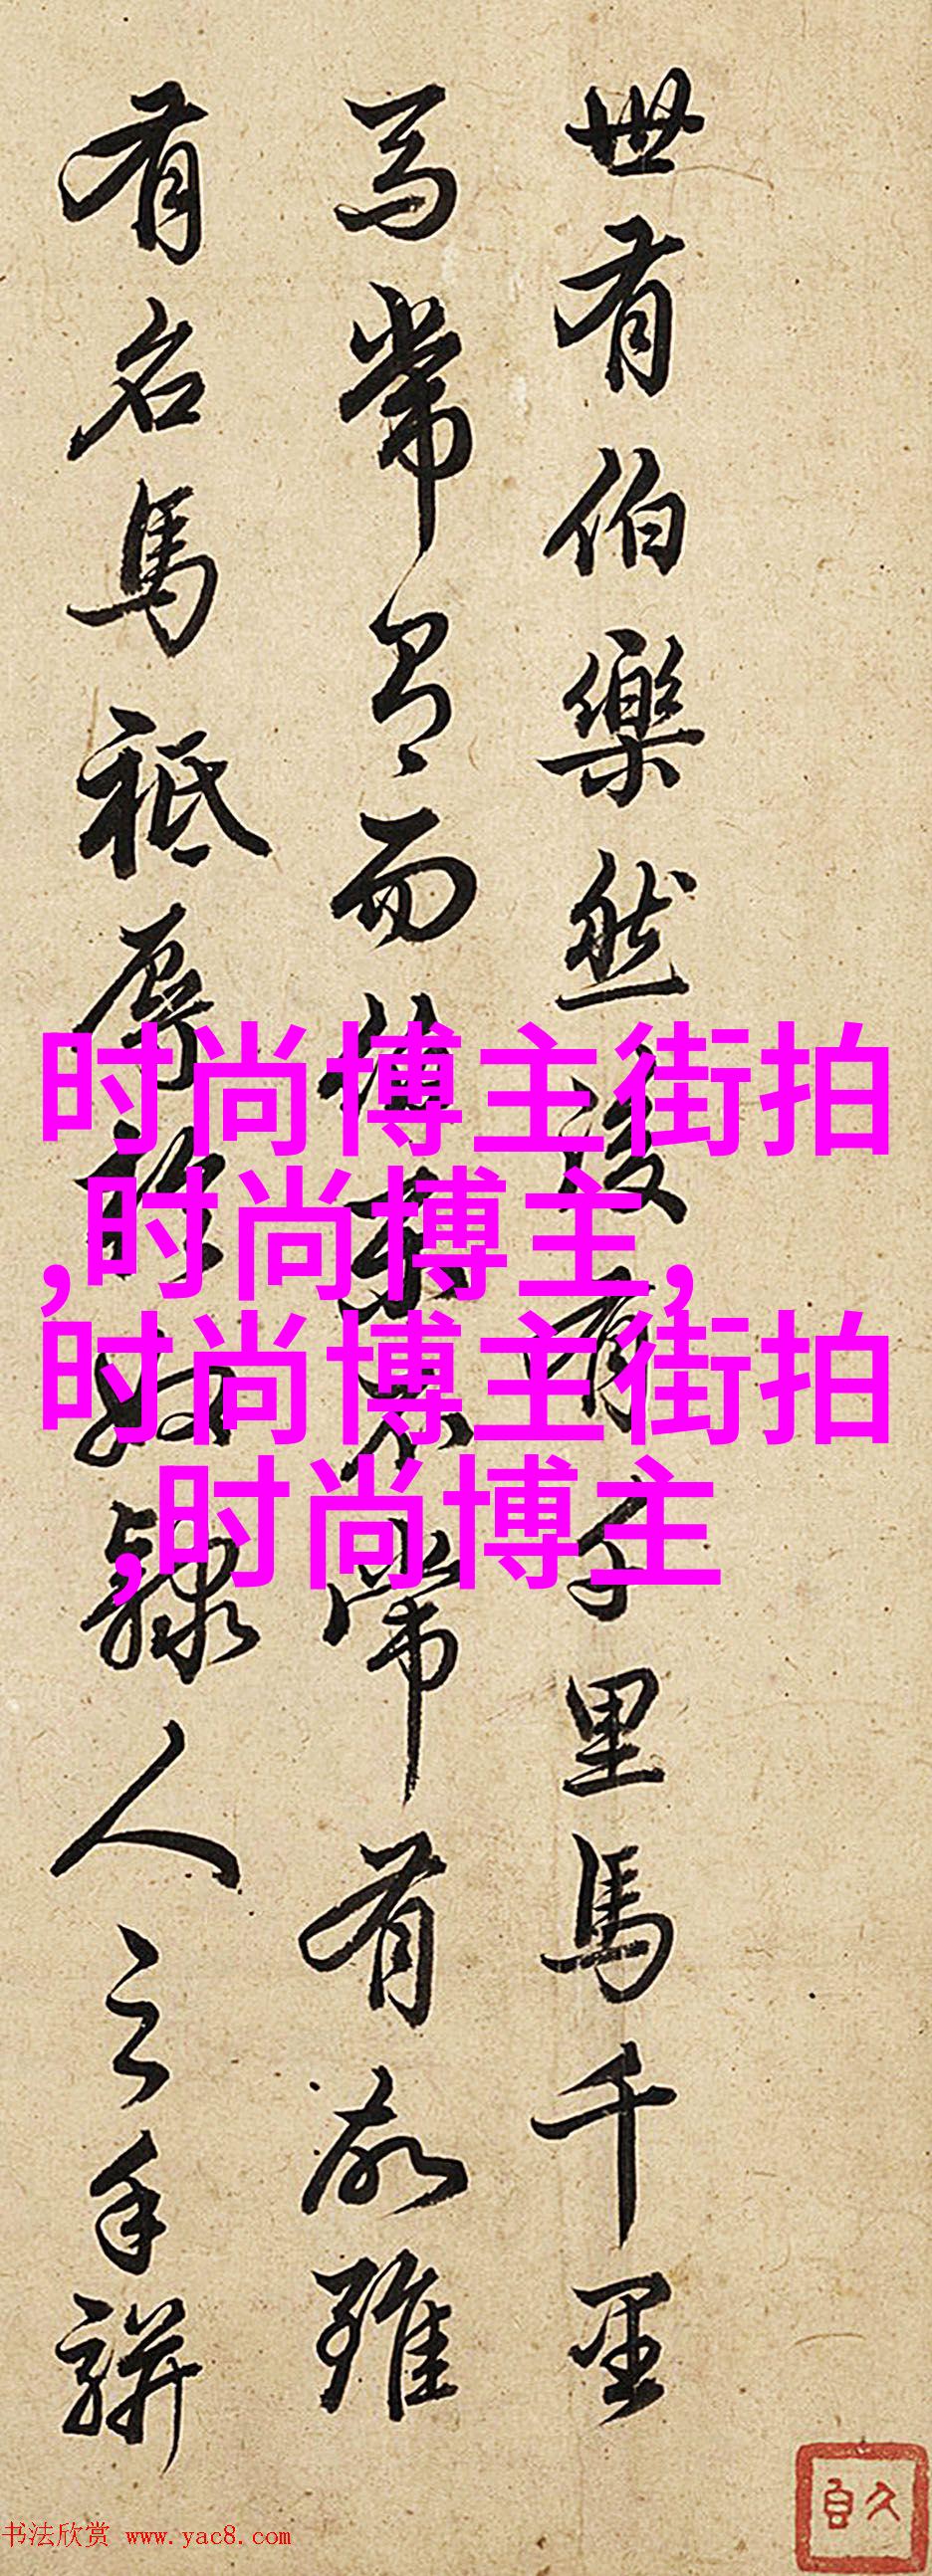 世有伯樂然後有千里馬千里
馬常有而伯樂不常有故雖
有名馬祗辱於奴隸人之手騈
时尚博主街拍
,时尚博主,
时尚博主街拍
,时尚博主
书法欣赏 www.yac8.com